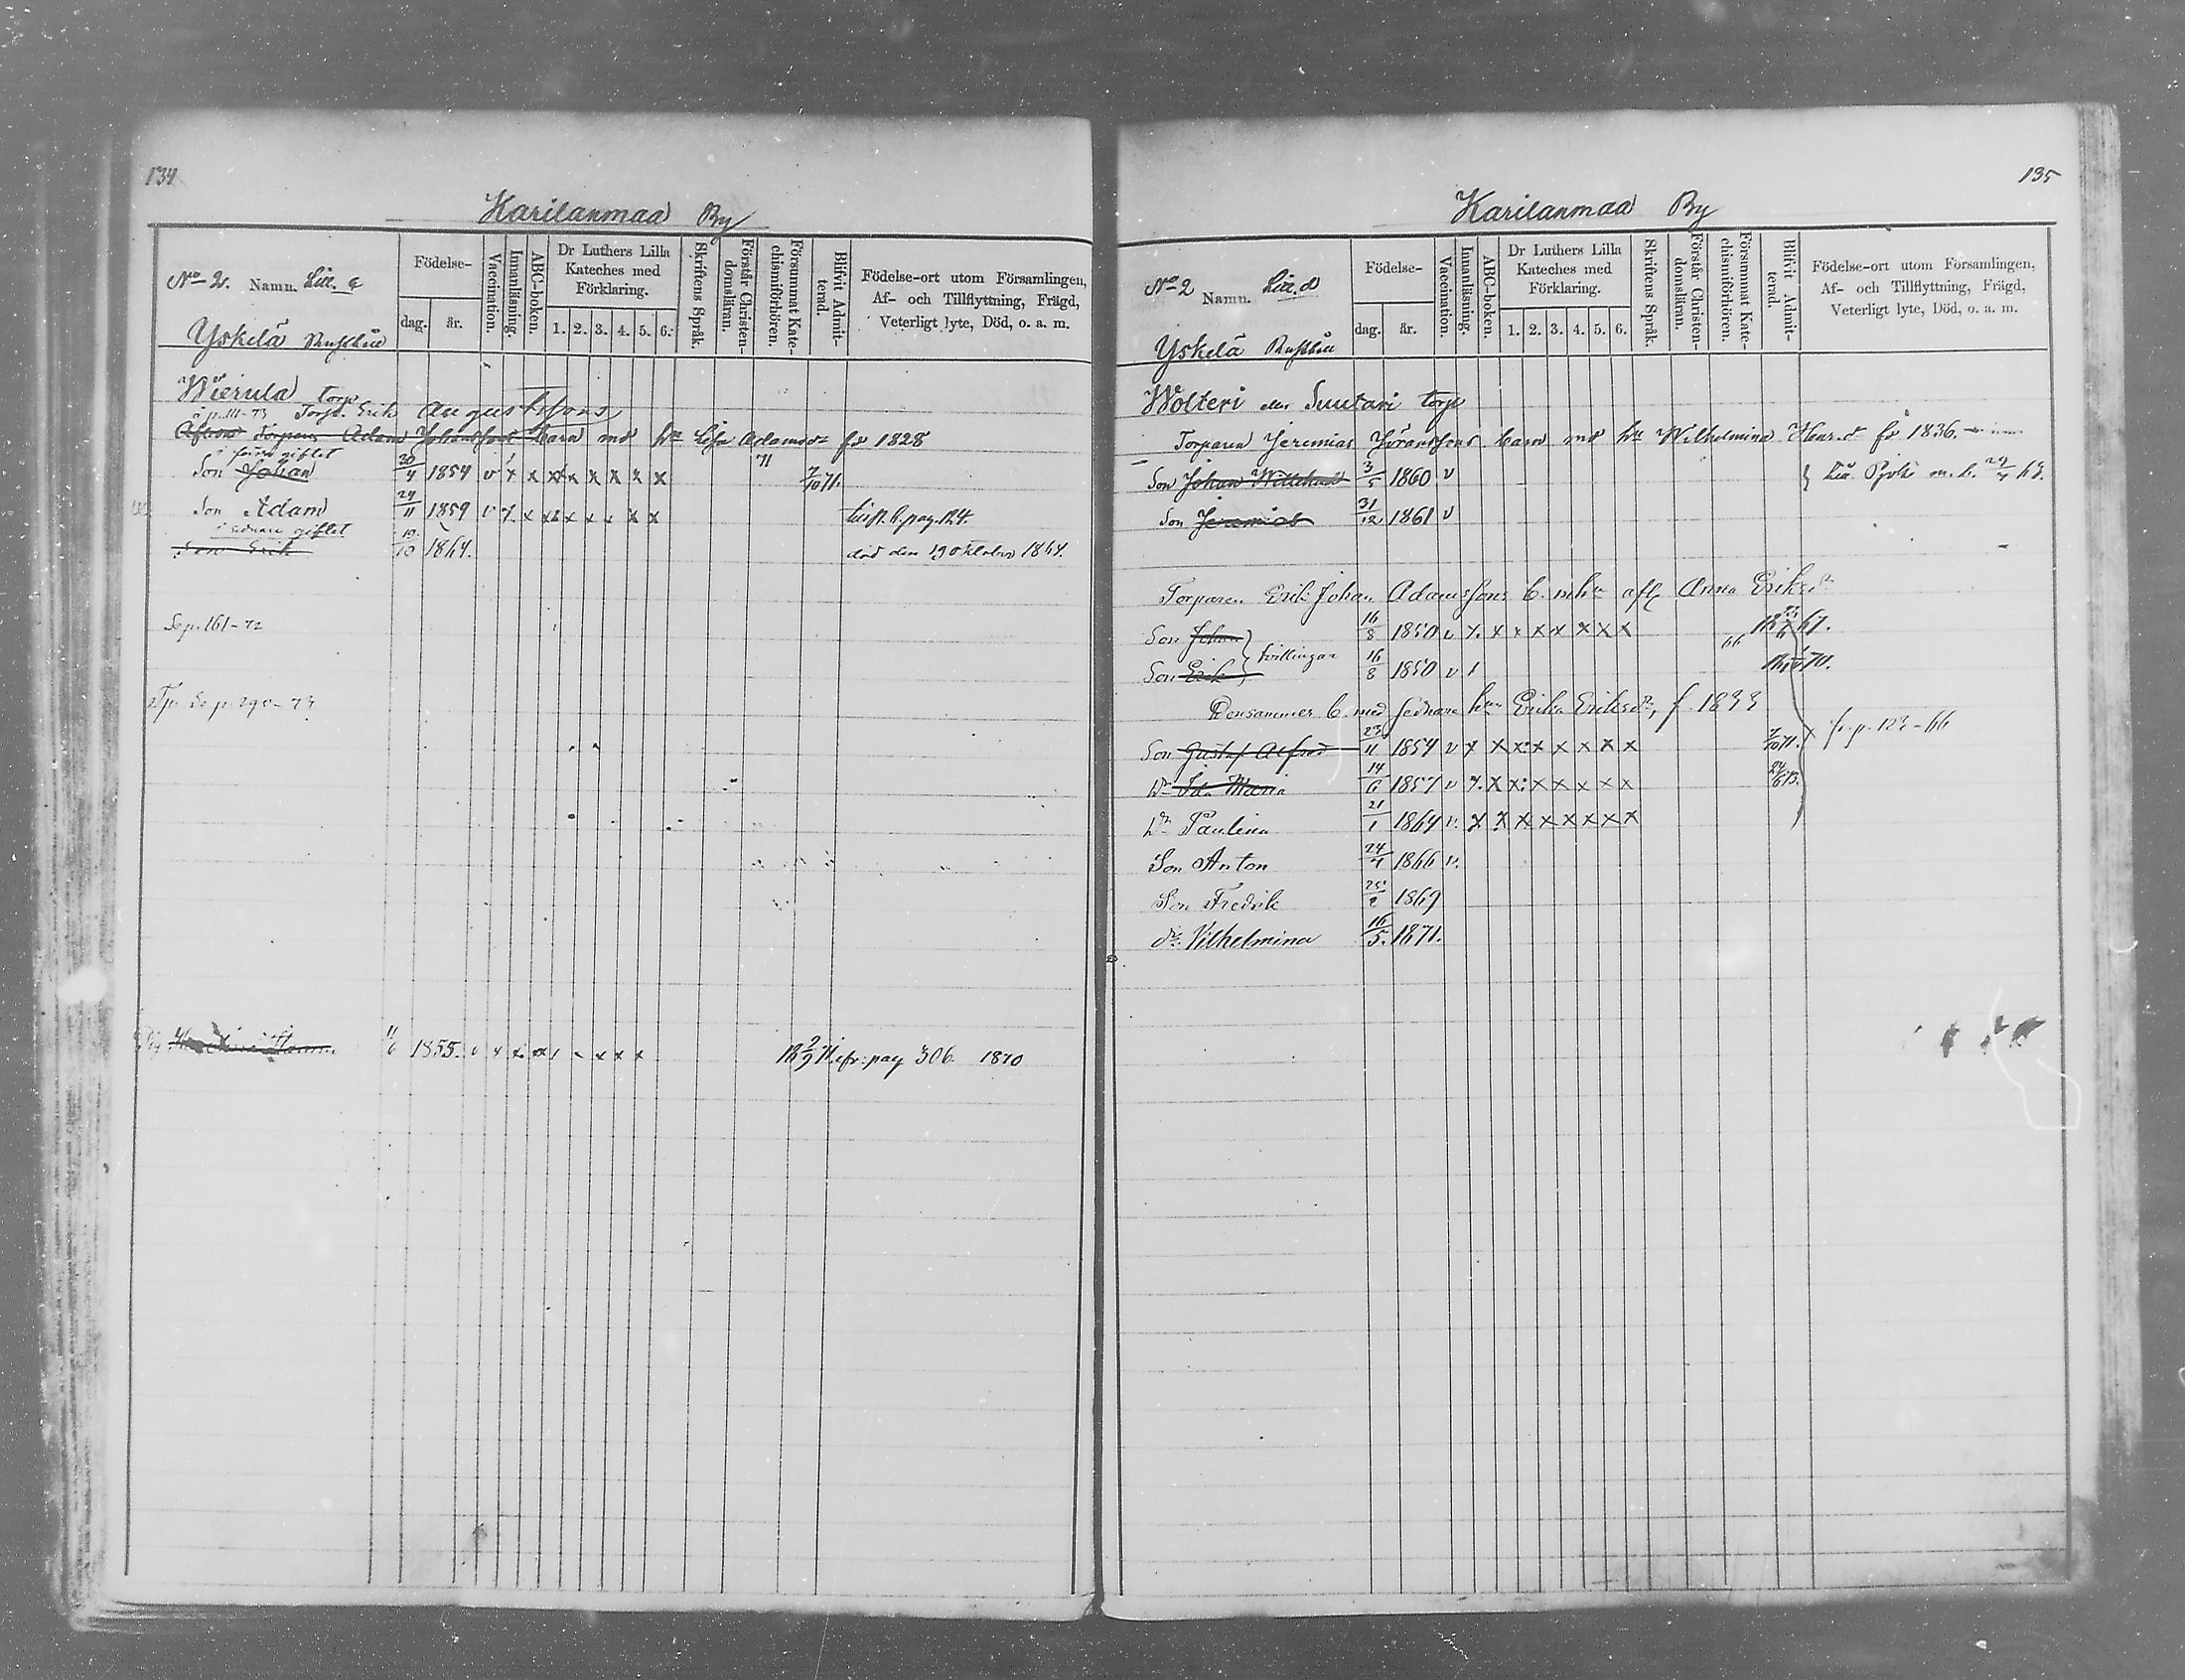 134
Karilanmaa By
No 2. Namn. Litt. c
Födelse-
dag. år.
Vaccination.
Innanläsning.
ABC-boken.
Dr Luthers Lilla Kateches med Förklaring.
1. 2. 3. 4. 5. 6.
Skriftens Språk.
Förstår Christendomsläran.
Försummat Katechismiförhören.
Blifvit Admitterad.
Födelse-ort utom Församlingen,
Af- och Tillflyttning, Frägd,
Veterligt lyte, Död, o. a. m.
Yskelä Rusthåll
Wierula torp
Torp. Erik Augustssons
Torparen Adam Johanssons barn md hu Lisa Adamsdr fö 1828
i förra giftet
Son Johan 30/4 1854 v x x x x x x x x 71 7/10 71.
Son Adam 29/11 1859 v x x x x x x x x
i senare giftet
Son Erik 19/10 1864. död den 19 oktober 1864.
Se p. 161-72
Se p. 295-73
11/6 1855. v x x x x x x x fr: pag 306. 1870
135
Karilanmaa By
No 2 Namn. Litt. d
Födelse-
dag. år.
Vaccination.
Innanläsning.
ABC-boken.
Dr Luthers Lilla Kateches med Förklaring.
1. 2. 3. 4. 5. 6.
Skriftens Språk.
Förstår Christendomsläran.
Försummat Katechismiförhören.
Blifvit Admitterad.
Födelse-ort utom Församlingen,
Af- och Tillflyttning, Frägd,
Veterligt lyte, Död, o. a. m.
Yskelä Rusthåll
Wolteri eller Suutari torp
Torparen Jeremias Göranssons barn md hu Wilhelmina Henr.d fö 1836.
Son Johan Willehard 3/5 1860 v
Son Jeremias 31/12 1861 v
Torparen Erik Johan Adamssons b. m hu afl Anna Eriksdr
Son Johan 16/8 1850 v x x x x x x x x 66 67.
tvillingar
Son Erik 16/8 1850 v 70.
Densammes b. med sednare hun Erika Eriksdr, f. 1833
Son Gustaf Alfred 23/11 1854 v x x x x x x x x 7/10 71. fr. p. 123-66
Dr Ida Maria 14/6 1857 v x x x x x x x x 73.
Dr Paulina 21/1 1864 v. x x x x x x x x
Son Anton 24/4 1866 v.
Son Fredrik 1869
dr. Vilhelmina 16/5. 1871.